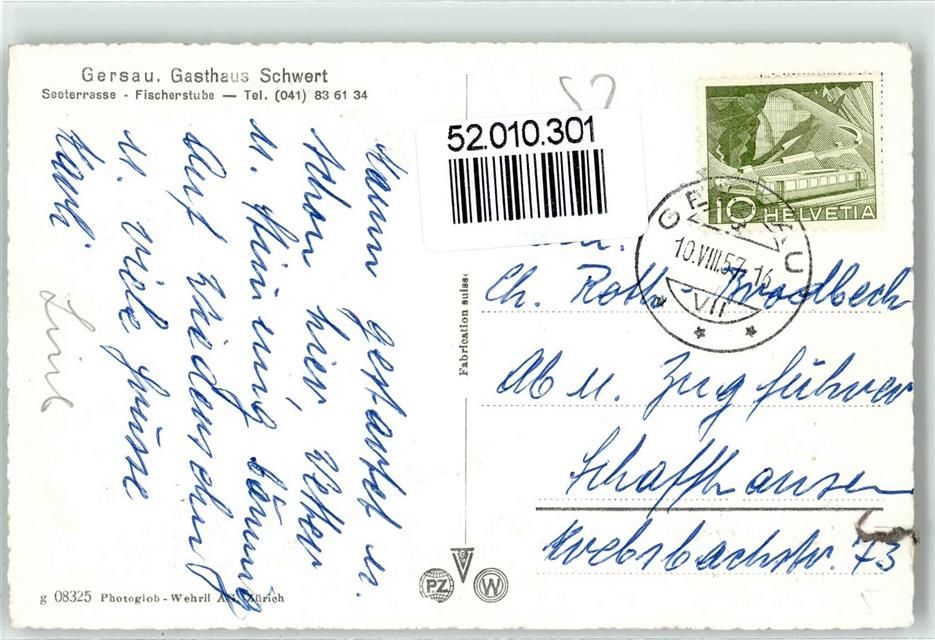 Gersau. Gasthaus Schwert
Seeterrasse - Fischerstube — Tel. (041) 83 61 34
Kaum gestartet u.
schon hier, Wetter
u. Stimmung bäumig
Auf Wiedersehn
u. viele Grüsse
52
52.010.301
10 HELVETIA
GERSAU
10.VIII.57-16
VII
Ch. Roth-Brodbeck
Ab u. Zugführer
Schaffhausen
Krebsbachstr. 73
Fabrication suisse
PZ
W
g 08325 Photoglob-Wehrli AG. Zürich